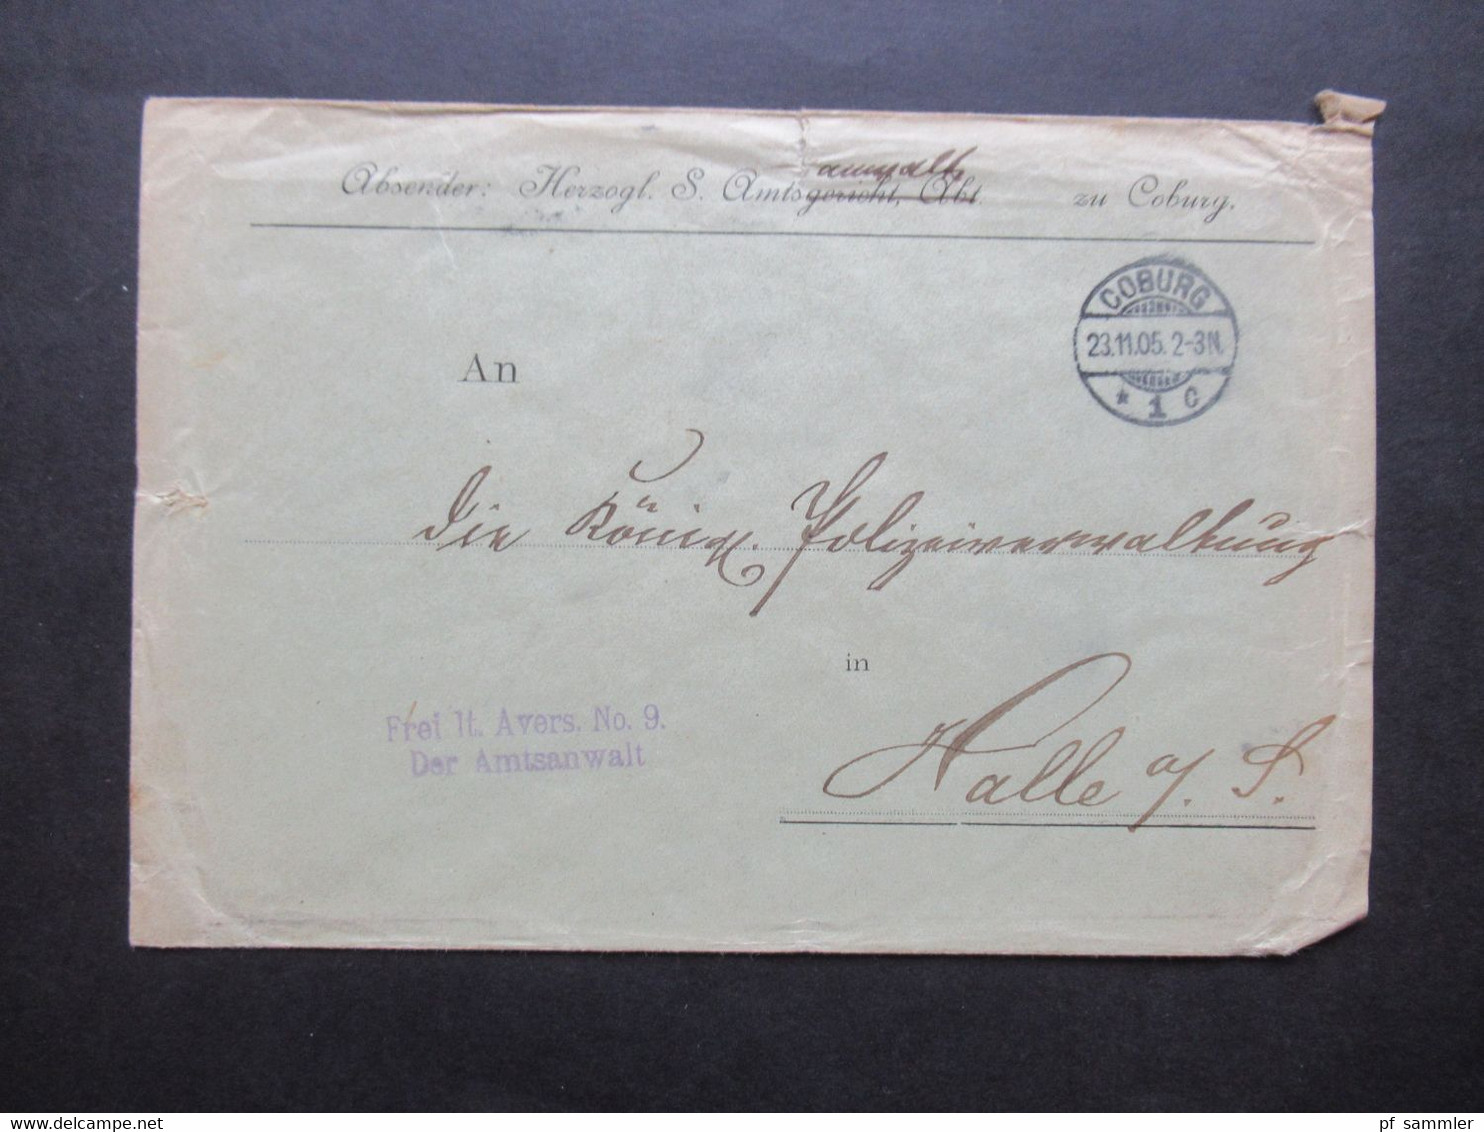 anwalt
Absender: Herzogl. S. Amtsgericht, Abt. zu Coburg.
COBURG
23.11.05. 2-3N.
* 1 C
An
die Königl. Polizeiverwaltung
in
Halle a/. S.
Frei lt. Avers. No. 9.
Der Amtsanwalt
www.delcampe.net
pf_sammler